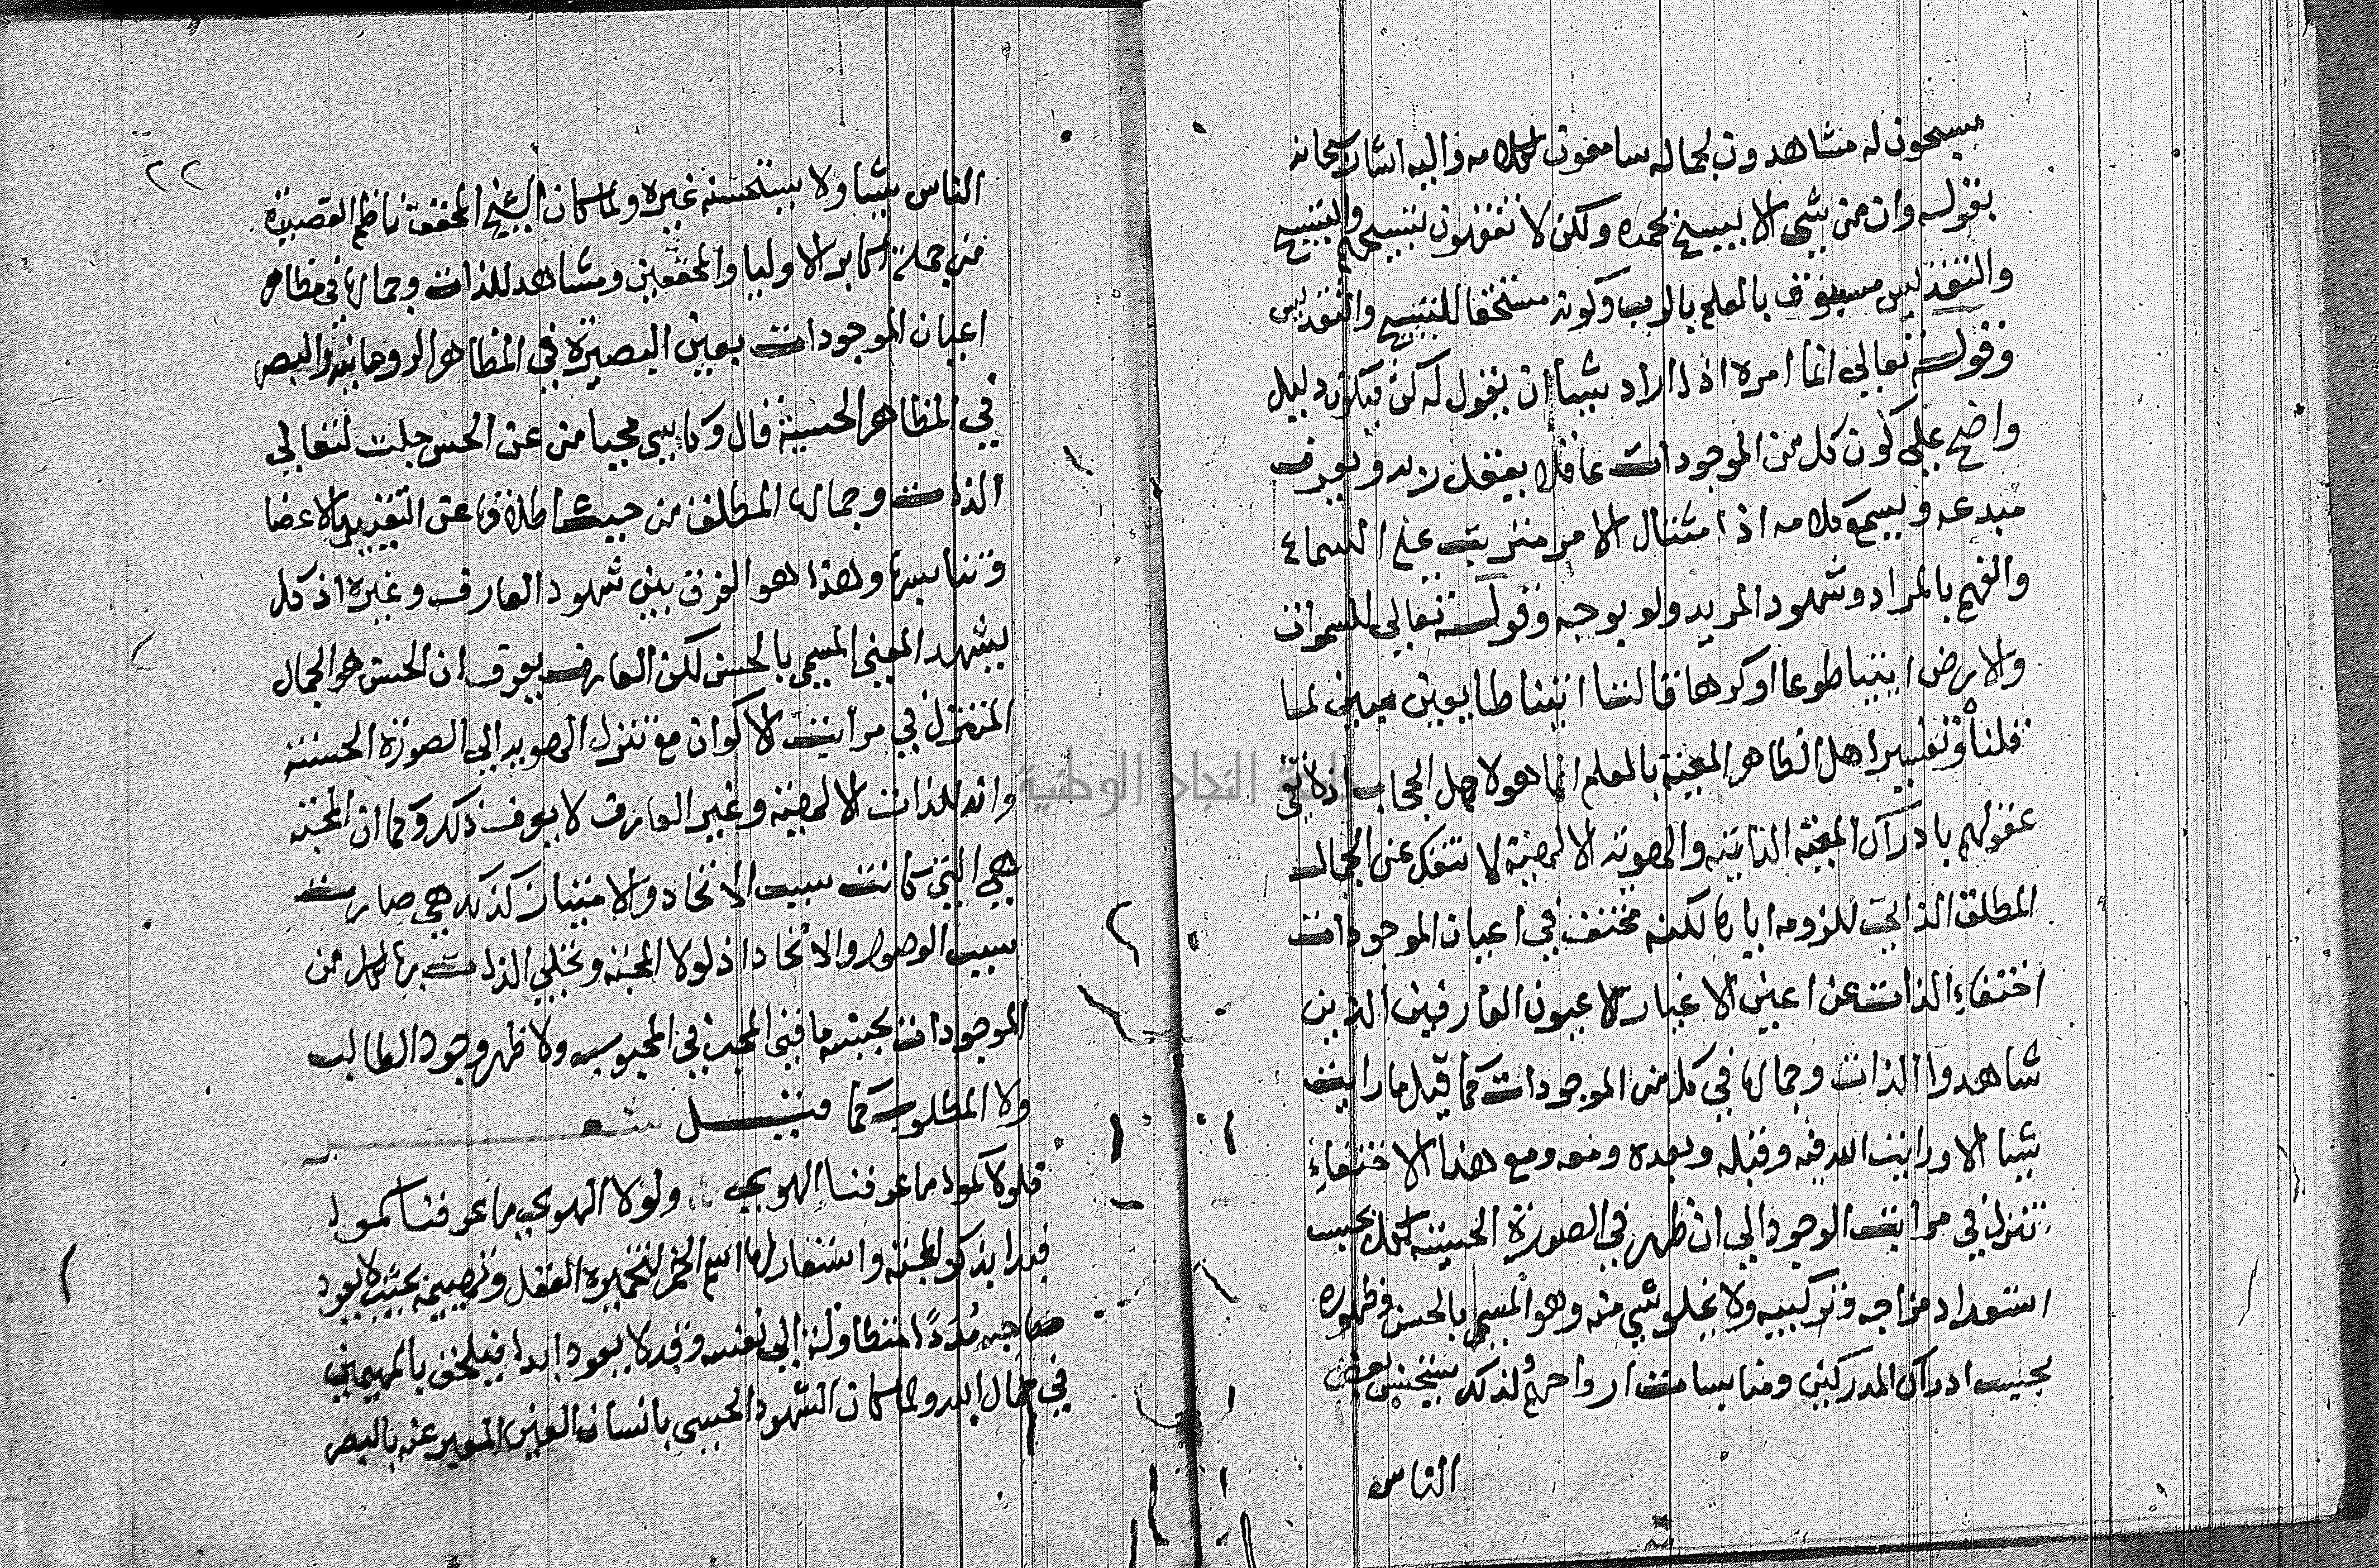 مسبحون له مشاهدون لجماله سامعون كلامه واليه اشار سبحانه
بقوله وان من شي الا يسبح بحمده ولكن لا تفقهون تسبيحهم والتسبيح
والتقديس مسبوق بالعلم بالرب وكونه مستحقا للتسبيح والتقديس
وقوله تعالي انما امره اذا اراد شيا ان يقول له كن فيكون دليل
واضح علي كون كل من الموجودات عاقلا يعقل ربه ويعرف
مبدعه ويسمع كلامه اذ امتثال الامر مترتب علي السماع
والفهم بالمراد وشهود المريد ولو بوجه وقوله تعالي للسموات
والارض ايتيا طوعا او كرها قالتا اتينا طايعين مبين لما
قلنا وتفسير اهل الظاهر المعية بالعلم انما هو لاهل الحجاب اذ لا تفي
عقولهم بادراك المعية الذاتية والهوية الالهية لا تنفك عن الجمال
المطلق الذاتي للزومه اياها لكنه مختف في اعيان الموجودات
اختفاء الذات عن اعين الاغيار لا عيون العارفين الذين
شاهدوا الذات وجمالها في كل من الموجودات كما قيل ما رايت
شيا الا ورايت الله فيه وقبله وبعده ومعه ومع هذا الاختفاء
تنزل في مرايت الوجود الي ان ظهر في الصورة الحسية لكل بحسب
استعداد مزاجه وتركيبه ولا يخلو شي منه وهو المسمي بالحسن وظهوره
بحسب ادراك المدركين ومناسبات ارواحهم لذلك يستحسن بعض
الناس
٢٢
الناس شيا ولا يستحسنه غيره ولما كان الشيخ المحقق ناظم القصيدة
من جملة اكابر الاوليا والمحققين ومشاهد للذات وجمالها في مظاهر
اعيان الموجودات بعين البصيرة في المظاهر الروحانية والبصر
في المظاهر الحسية قال وكاسي محيا من عن الحسن جلت لتعالي
الذات وجمالها المطلق من حيث اطلاقها عن التقييد بالاعضا
وتناسبها وهذا هو الفرق بين شهود العارف وغيره اذ كل
يشهد المعني المسمي بالحسن لكن العارف يعرف ان الحسن هو الجمال
المتنزل في مرايت الاكوان مع تنزل الهوية الي الصورة الحسنة
وانه للذات الالهية وغير العارف لا يعرف ذلك وكما ان المحبة
هي التي كانت سبب الاتحاد والامتياز كذلك هي صارت
سبب الوصول والاتحاد اذ لولا المحبة وتجلي الذات بها لكل من
الموجودات بحبته ما فني المحب في المحبوب ولا ظهر وجود الطالب
ولا المطلوب كما قيل شعر
فلولاكمو ما عرفنا الهوي ولولا الهوي ما عرفناكمو
فبدا بذكر المحبة واستعار لها اسم الخمر لتخميره العقل وتهييمه بحيث لا يعود
صاحبه مددا متطاولة الي نفسه وقد لا يعود ابدا فيلحق بالمهيمين
في جمال الله ولما كان الشهود الحسي بانسان العين المعبر عنه بالبصر